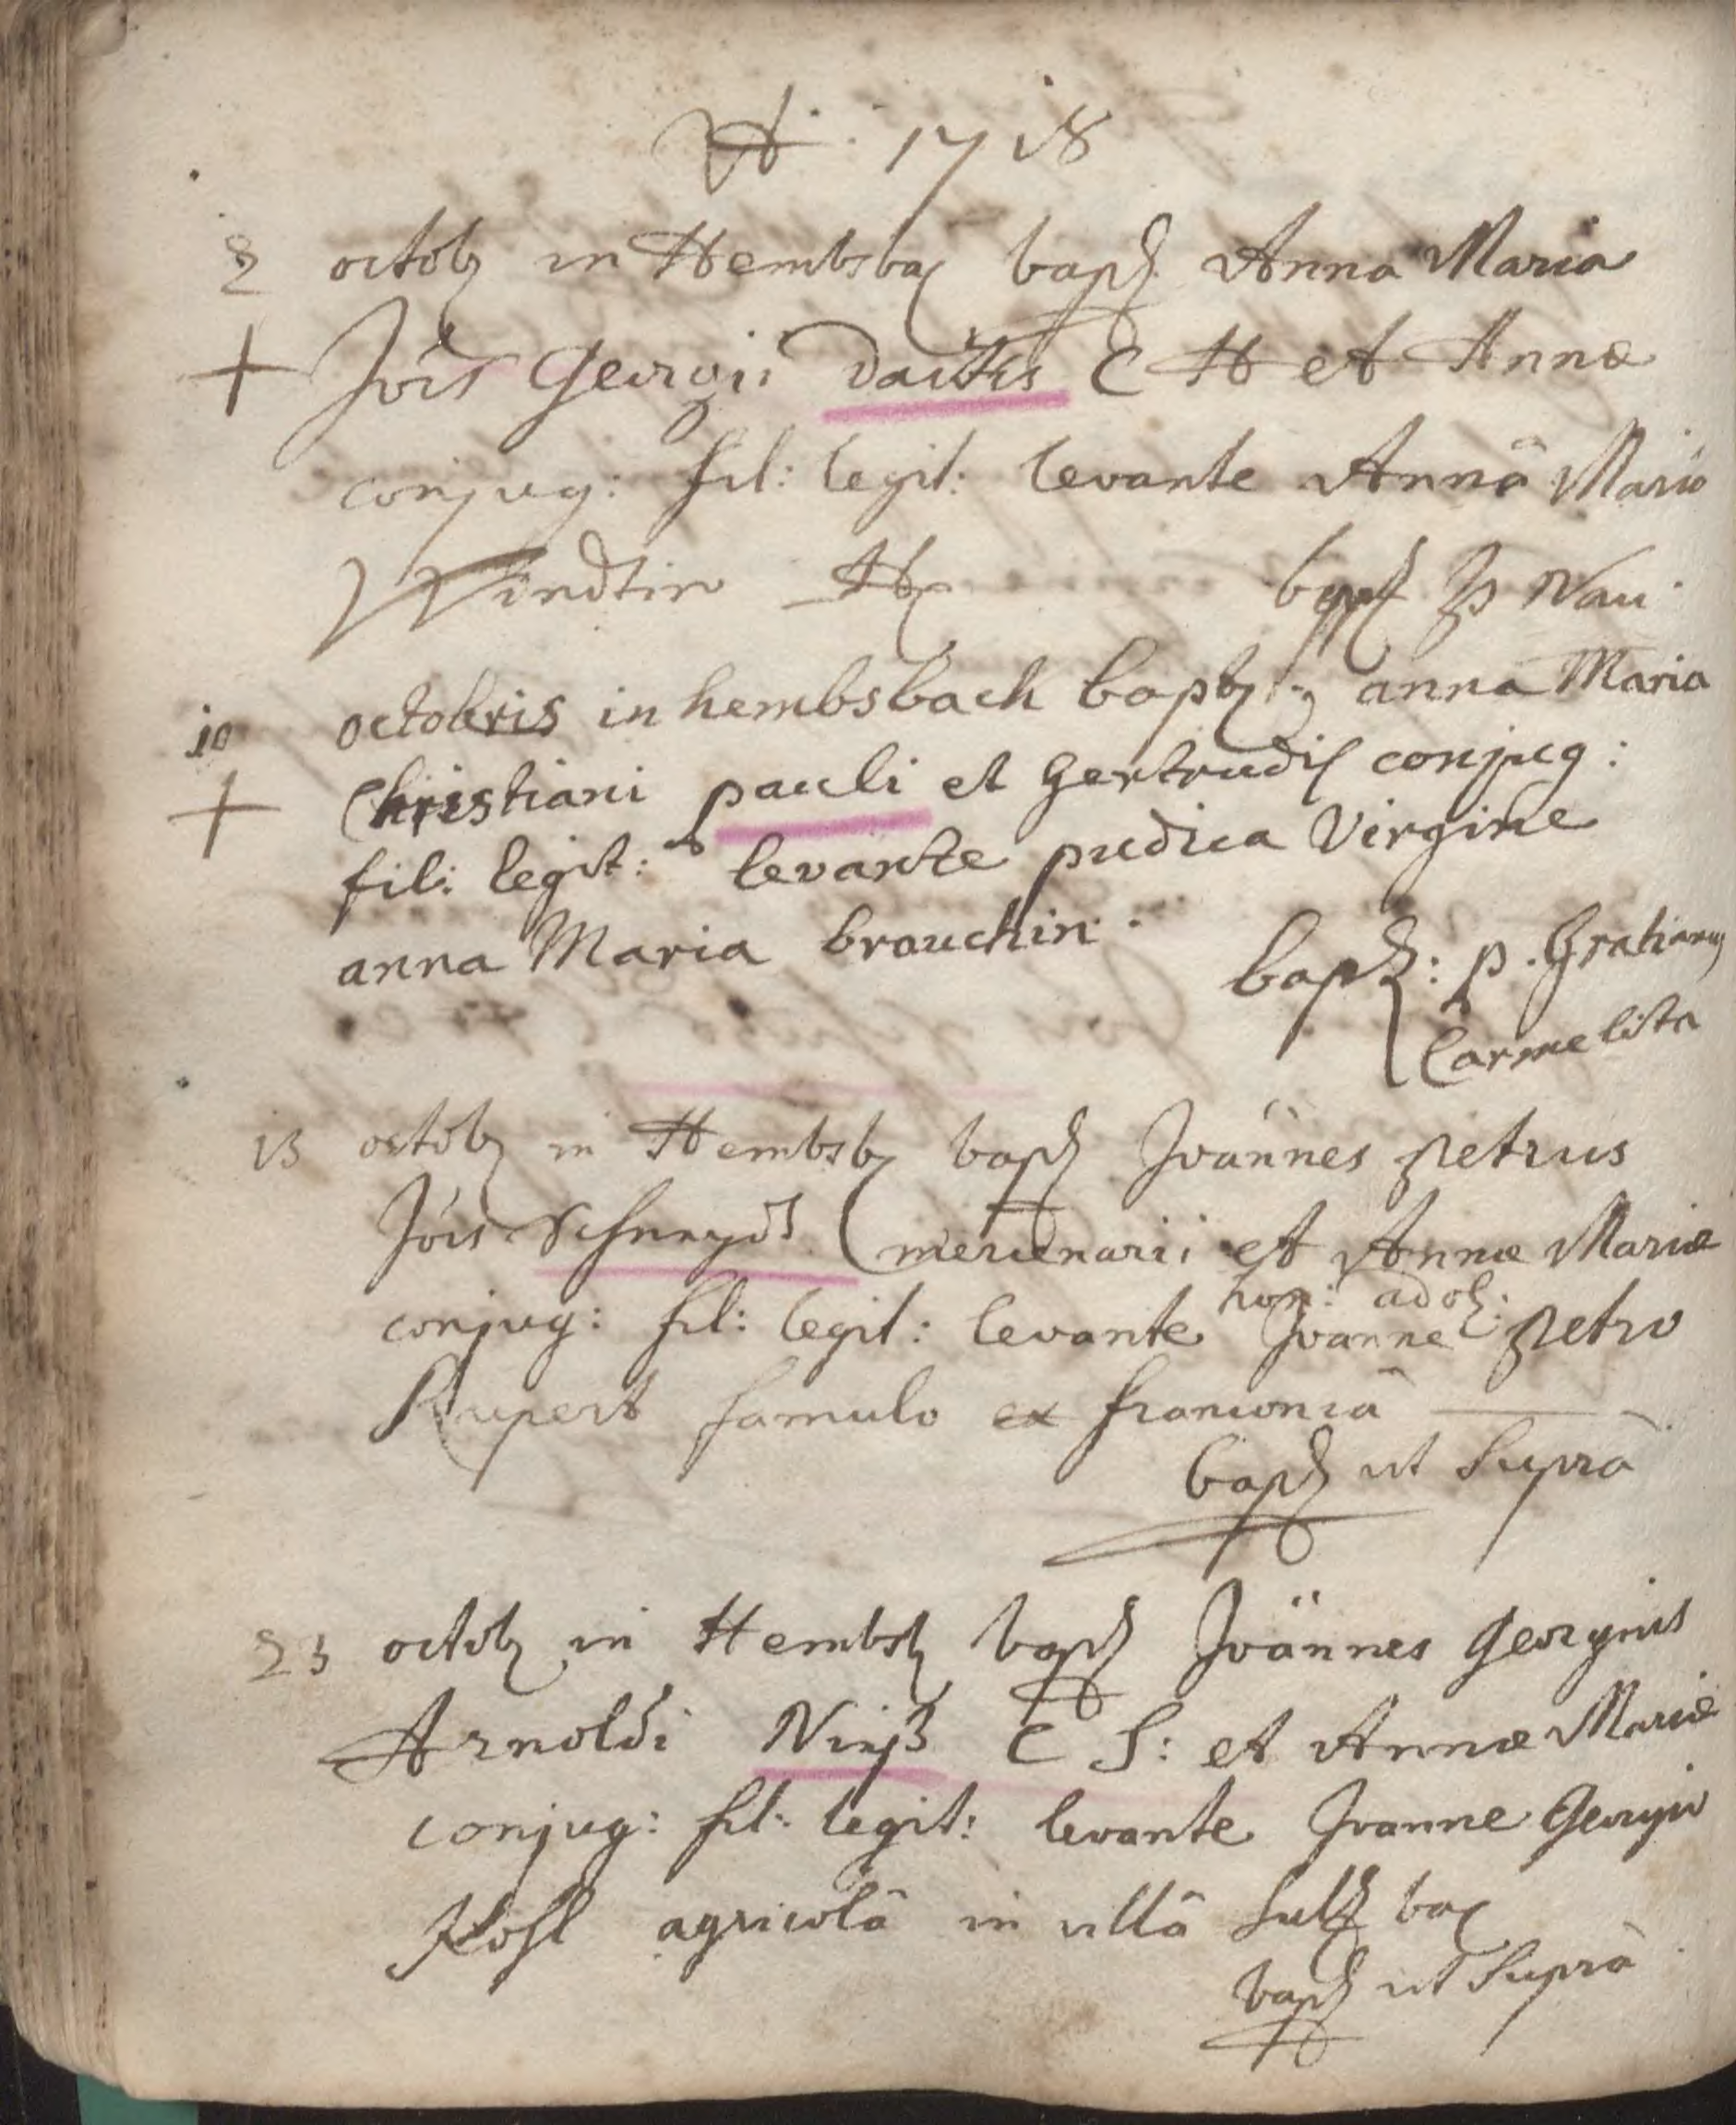 A: 1718
2 octob in Hembsba bapt Anna Maria
+ Jois Georgii C H et Annæ
conjug: fil: legit: levante Annâ Mariâ
Windtin H bapt P Nau
10 octobris in hembsbach bapt anna Maria
+ Christiani pauli et Gertrudis conjug:
fil: legit: levante pudica Virgine
anna Maria brauchin.
bapt: p. Gratianus
Carmelita
13 octob in Hembsb bapt Joannes petrus
Jois Schnayd mercenarii et Annæ Mariæ
hon: adol:
conjug: fil: legit: levante Joanne petro
Rupert famulo ex franconiâ
bapt ut Suprâ
23 octob in Hembsb bapt Joannes Georgius
Arnoldi C S: et Annæ Mariæ
conjug: fil: legit: levante Joanne Georgio
Kohl agricolâ in villâ Sultzbac
bapt ut Suprâ